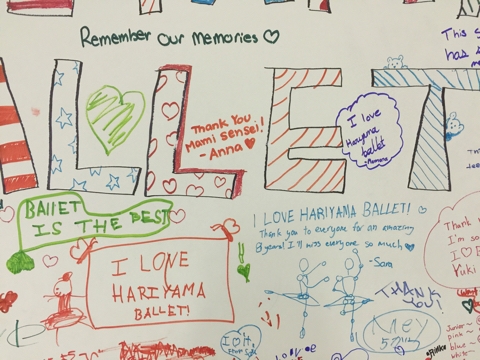 Remember Our Memories ♡
This s
has s
ALLET
Thank You
Mami sensei!
-Anna ♥
I love
Hariyama
ballet
-Momona
BAllET
IS THE BEST
I LONE
HARIYAMA
BALLET!
I LOVE HARIYAMA BALLET! ♡
Thank you to everyone for an amazing
8 years! I'll miss everyone so much ♥
-Sara
THANK
YOU!
Thank
I'm so
I ♡ B
Yuki
I ♡ H.
Junior ~
pink ~
blue ~
white ~